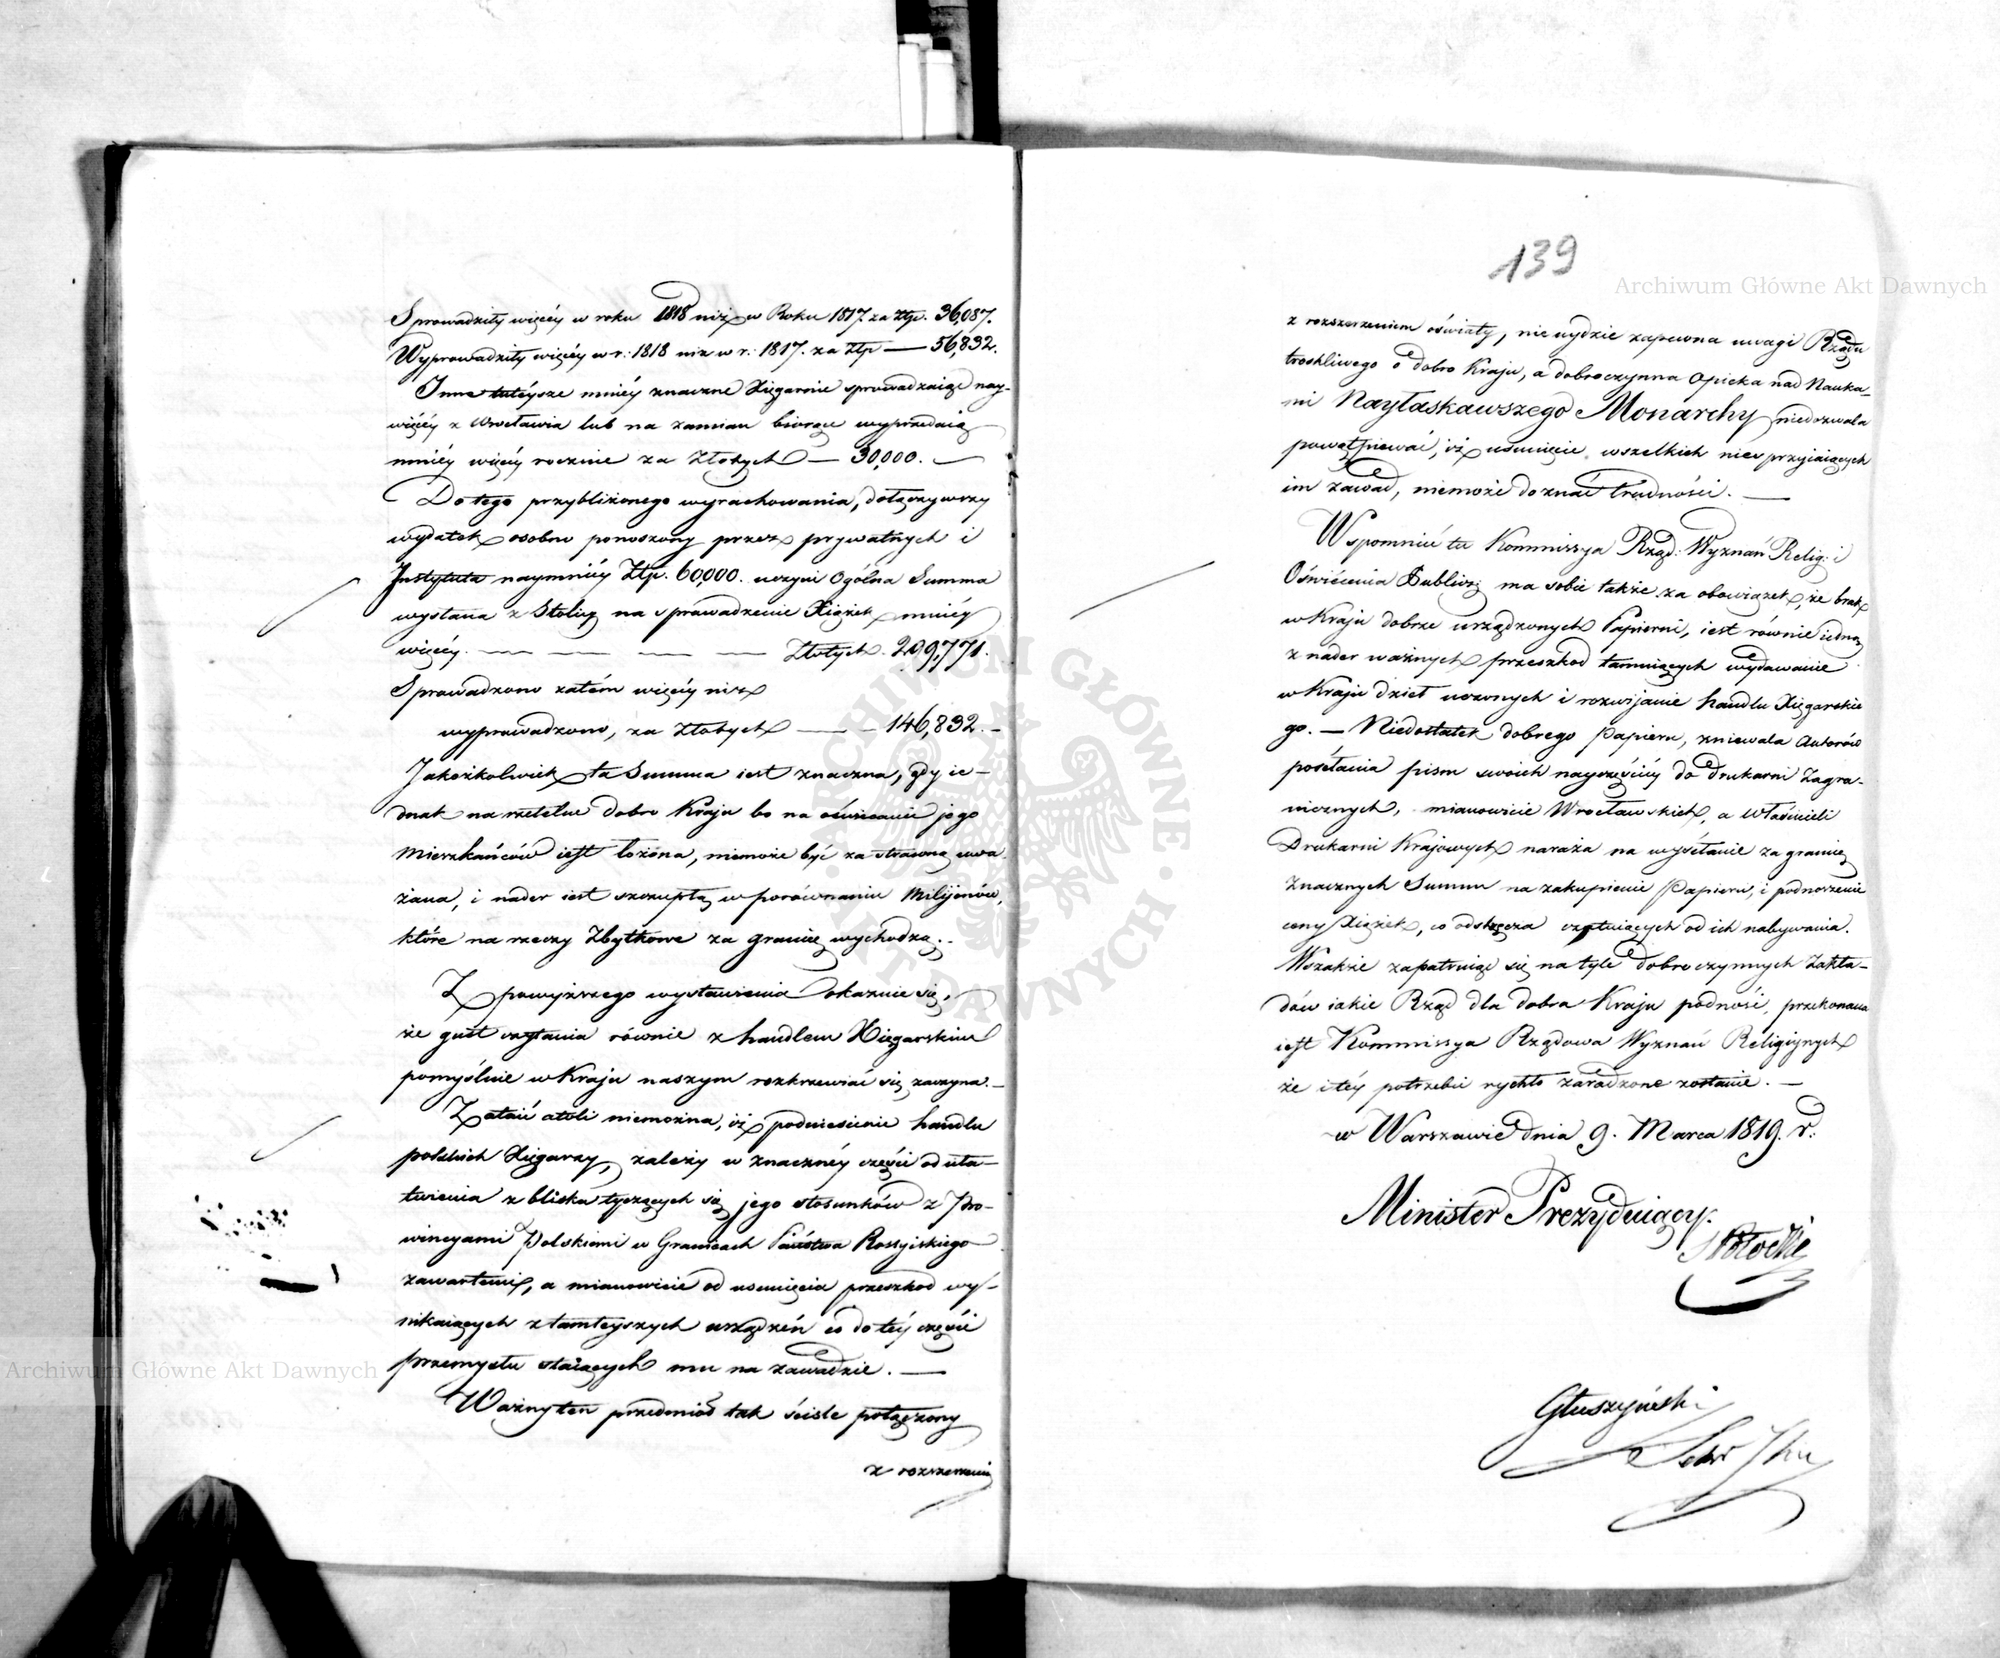 Sprowadziły więcéy w roku 1818 niż w Roku 1817. za Złp. 36,087.
Wyprowadziły więcéy w r: 1818 niż w r: 1817. za Złp — 56,832.
Inne tutéysze mniéy znaczne Xięgarnie sprowadzaiąc nay-
więcéy z Wrocławia lub na zamian biorąc wyprzedaią
mniéy więcéy rocznie za Złotych — 30,000. —
Do tego przybliżonego wyrachowania, dołączywszy
wydatek osobno ponoszony przez prywatnych i
Instytuta naymniéy Złp. 60,000. uczyni Ogólna Summa
wysłana z Stolicy na sprowadzenie Xiążek mniéy
więcéy. — — — — Złotych 299,771.
Sprowadzono zatém więcéy niż
wyprowadzono, za Złotych — 146,832. —
Jakożkolwiek ta Summa iest znaczna, gdy ie-
dnak na rzetelne dobro Kraju bo na oświecenie jego
Mieszkańców iest łożona, niemoże być za straconą uwa
żana, i nader iest szczupłą w porównaniu Milijonów,
które na rzeczy Zbytkowe za granicę wychodzą. -
Z powyższego wystawienia okazuie się,
że gust czytania równie z handlem Xięgarskim
pomyślnie w Kraju naszym rozkrzewiać się zaczyna. —
Zataić atoli niemożna, iż podniesienie handlu
polskich Xięgarzy, zależy w znacznéy części od uła-
twienia z bliska tyczących się jego stosunków z Pro-
wincyami Polskiemi w Granicach Państwa Rossyiskiego
zawartemi, a mianowicie od usunięcia przeszkod wy-
nikaiących z tamteyszych urządzeń co do téy części
przemysłu staiących mu na zawadzie. —
Ważny ten przedmiot tak ściśle połączony
z rozszerzeniem
139
z rozszerzeniem oświaty, nie uydzie zapewna uwagi Rządu
troskliwego o dobro Kraju, a dobroczynna Opieka nad Nauka-
mi Nayłaskawszego Monarchy niedozwala
powątpiewać, iż usunięcie wszelkich niesprzyiaiących
im zawad, niemoże doznać trudności. —
Wspomnieć tu Kommissya Rząd: Wyznań Relig: i
Oświécenia Publicz: ma sobie także za obowiązek, że brak
w Kraju dobrze urządzonych Papierni, iest równie iedną
z nader ważnych przeszkod tamuiących wydawanie
w Kraju dzieł uczonych i rozwijanie handlu Xięgarskie
go. — Niedostatek dobrego Papieru, zniewala Autorów
posełania pism swoich nayczęściéy do drukarni Zagra-
nicznych, mianowicie Wrocławskich, a Właścicieli
Drukarni Krajowych naraża na wysełanie za granicę
Znacznych Summ na zakupienie Papieru, i podnoszenie
ceny Xiążek, co odstręcza czytuiących od ich nabywania.
Wszakże zapatruiąc się na tyle dobroczynnych Zakła-
dów iakie Rząd dla dobra Kraju podnosi, przekonana
iest Kommissya Rządowa Wyznań Religiynych
że i téy potrzebie rychło zaradzone zostanie. —
w Warszawie dnia 9. Marca 1819. r.
Minister Prezyduiący.
S Potocki
Głuszyński
Archiwum Główne Akt Dawnych
Archiwum Główne Akt Dawnych
ARCHIWUM GŁÓWNE AKT DAWNYCH